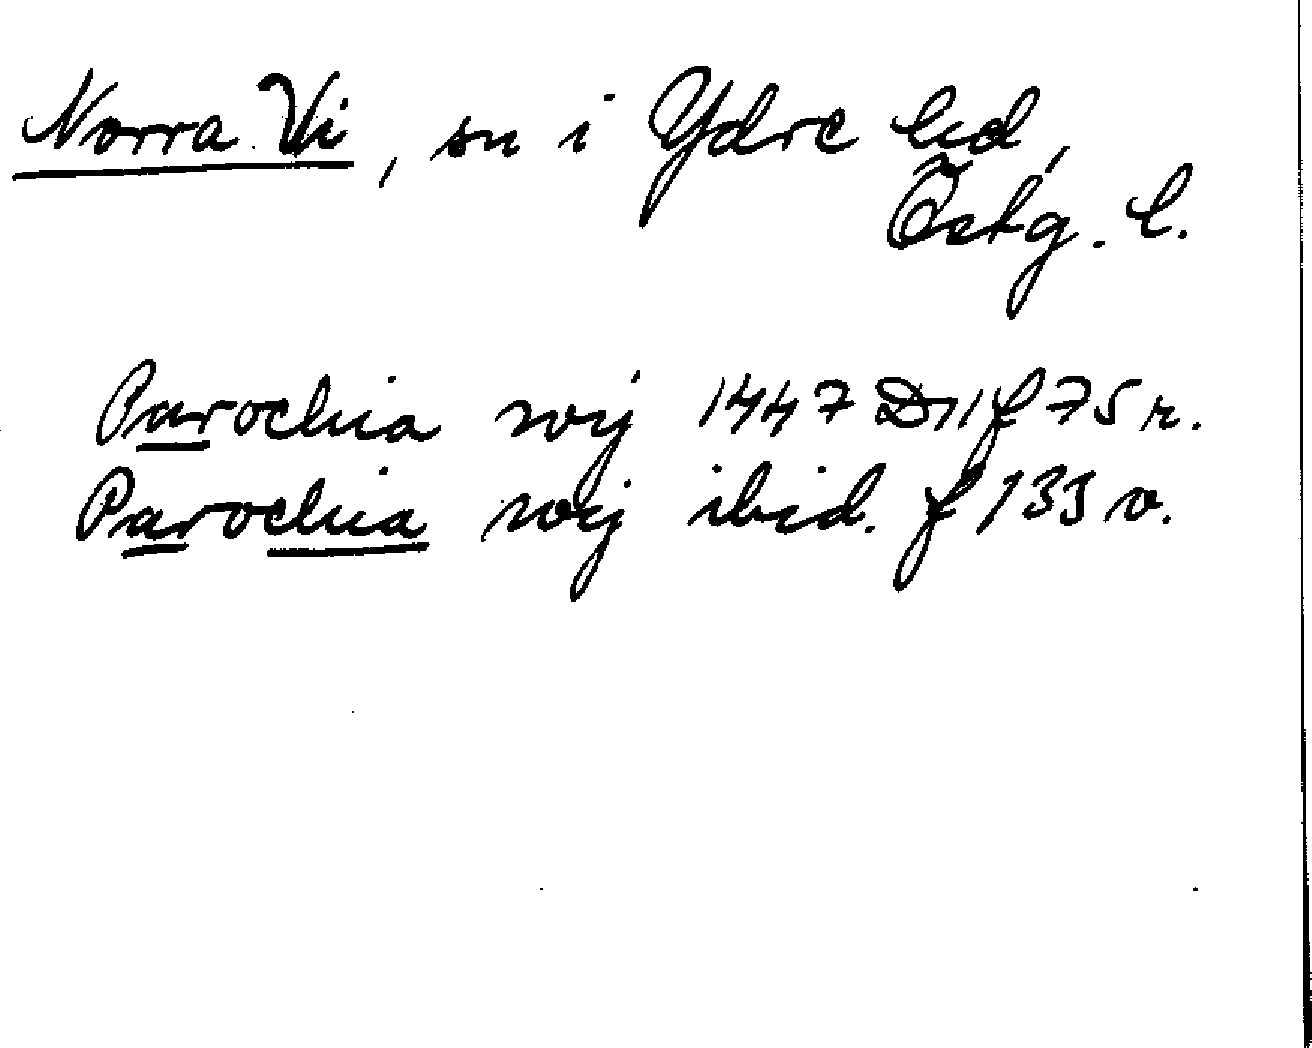 Norra Vi, sn i Ydre hd,
Östg. l.
Parochia wij 1447 D11 f 75 r.
Parochia wij ibid. f 133 v.